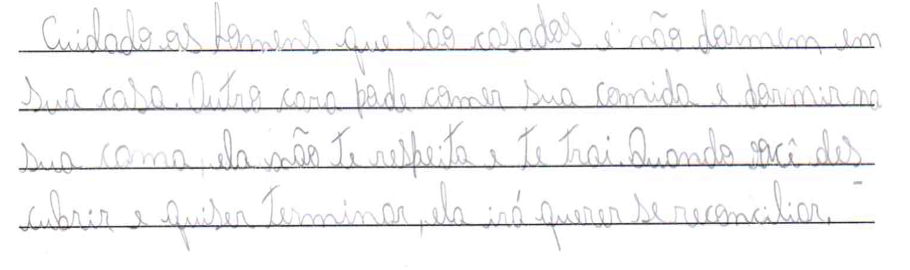 Cuidado as homens que são casados e não dormem em
sua casa. Outro cara pode comer sua comida e dormir na
sua cama, ela não te respeita e te trai. Quando você des
cubrir e quiser terminar, ela irá querer se reconciliar.